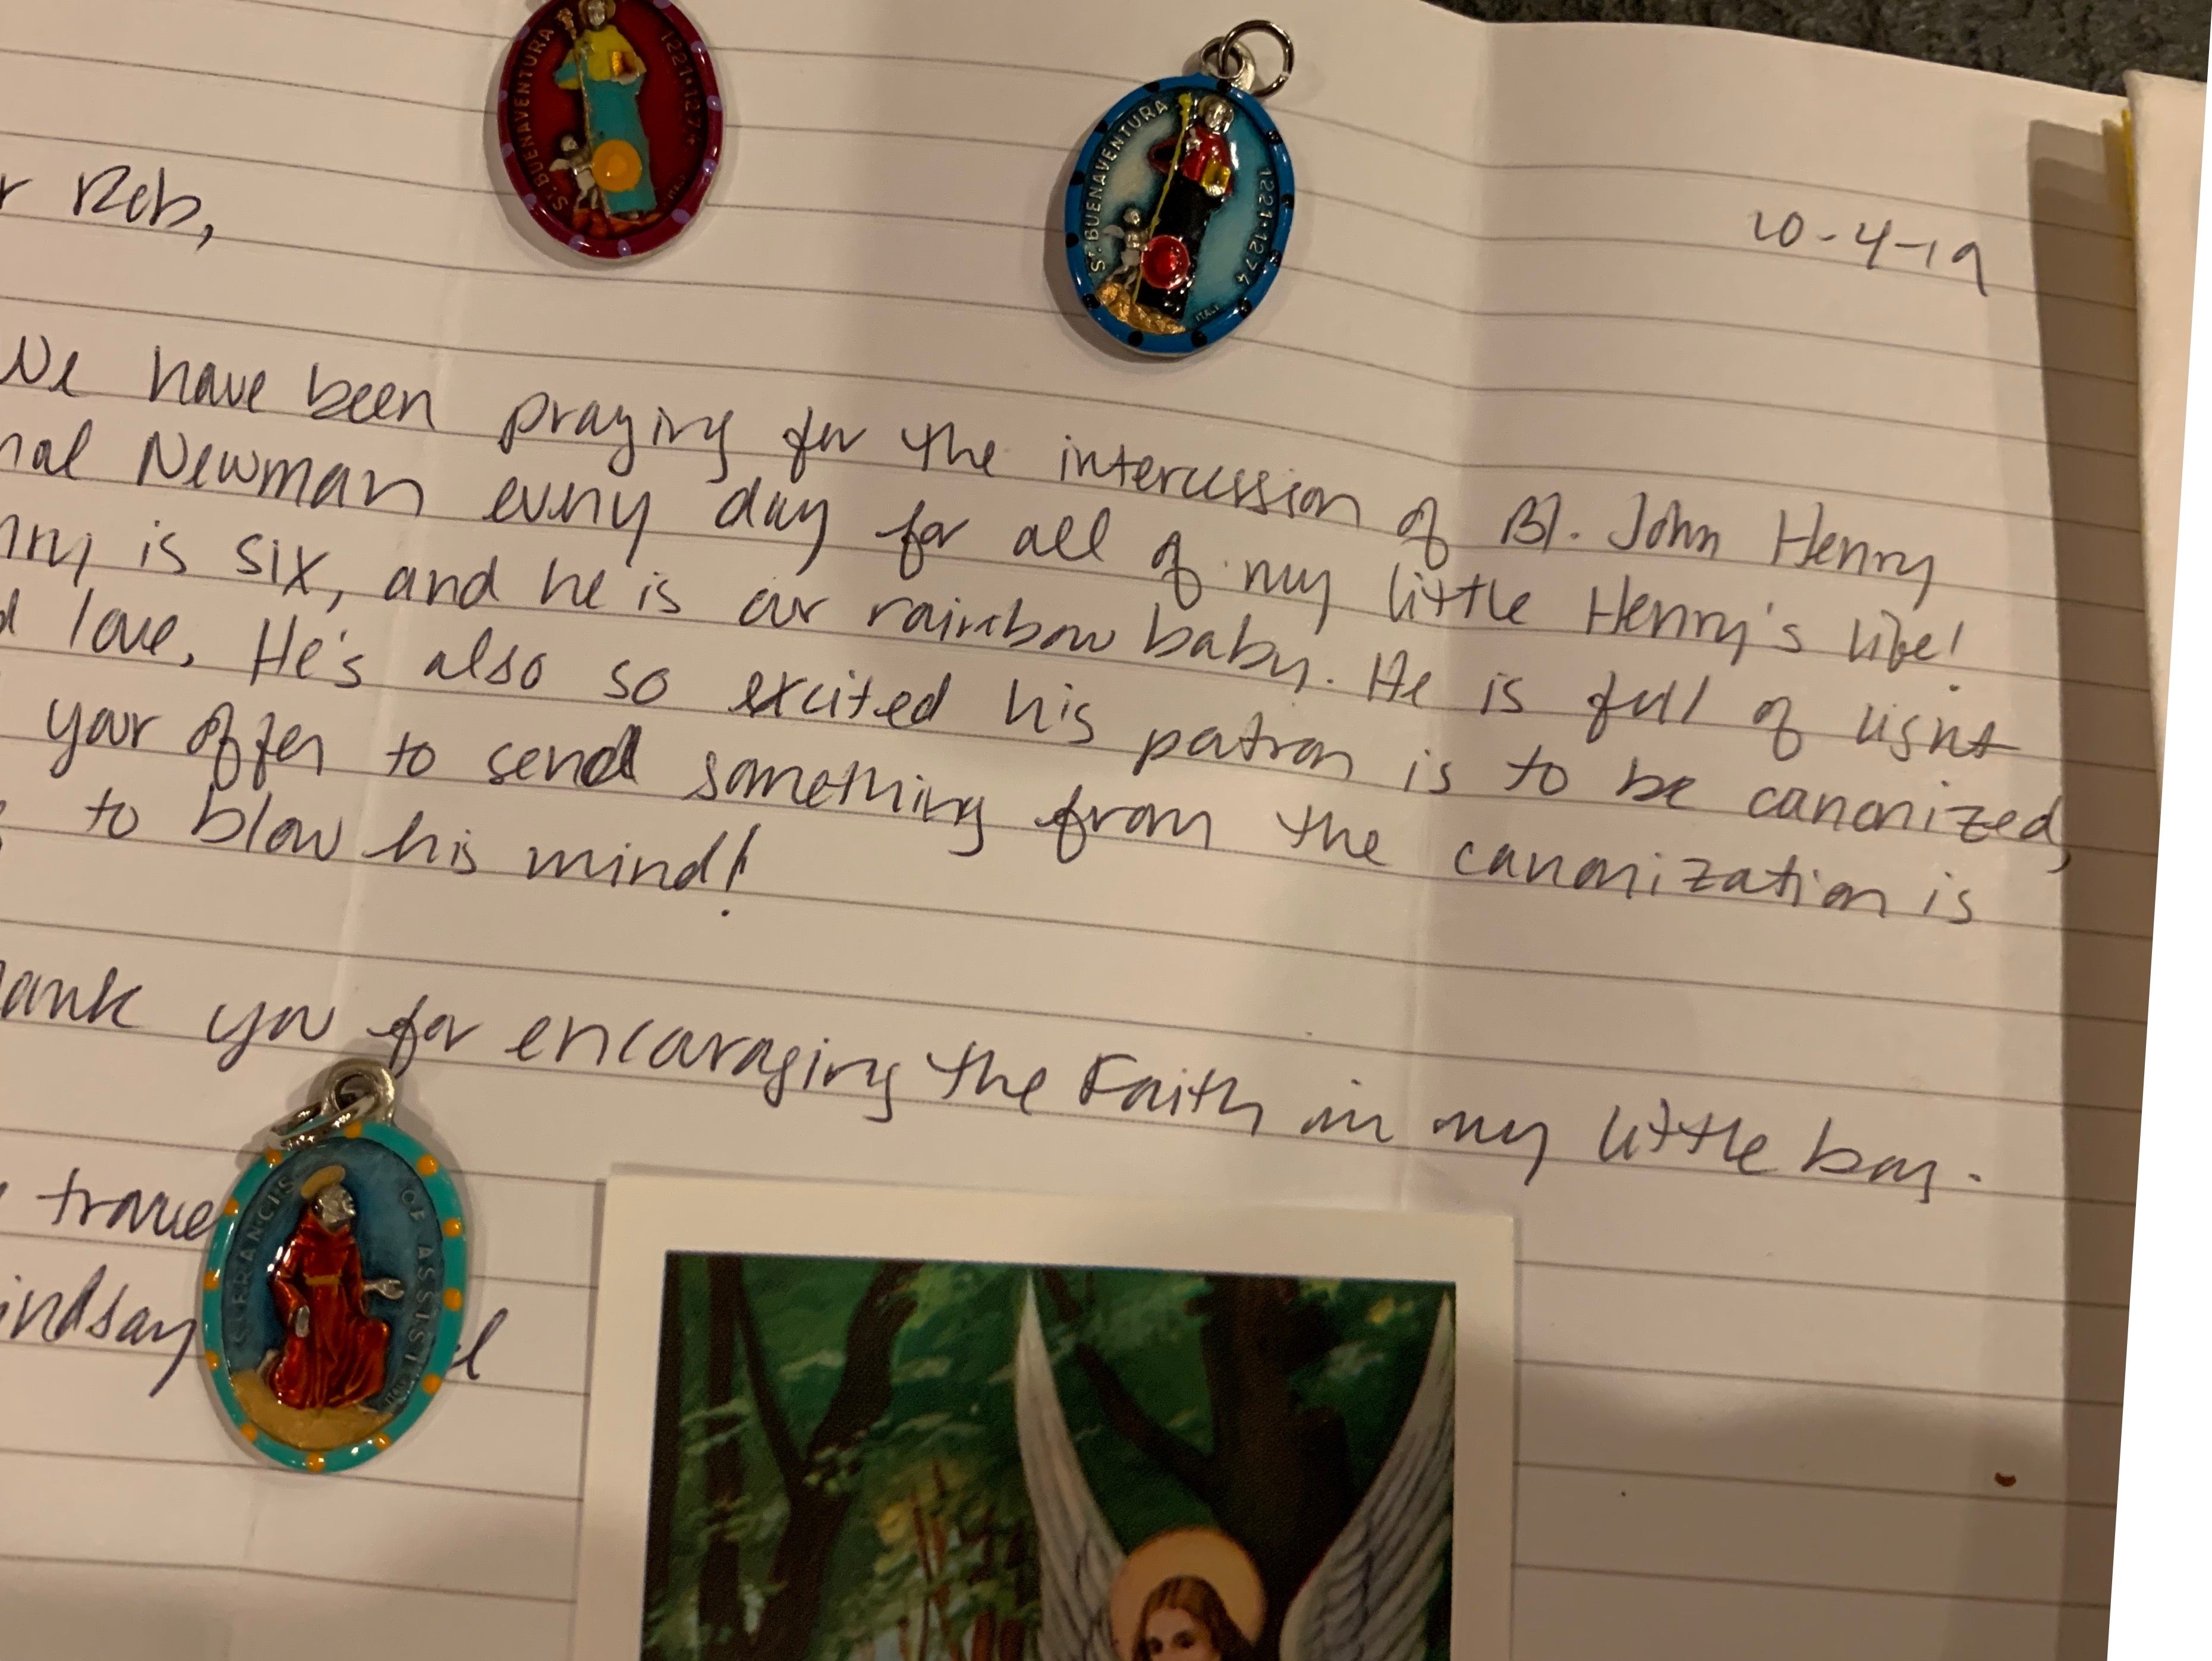 ST. BUENAVENTURA 1221·1274
ST. BUENAVENTURA 1221·1274
ITALY
10-4-19
r Reb,
We have been praying for the intercession of Bl. John Henry
nal Newman every day for all of my little Henry's life!
nry is six, and he is our rainbow baby. He is full of light
d love. He's also so excited his patron is to be canonized,
your offer to send something from the canonization is
to blow his mind!
hank you for encouraging the Faith in my little boy.
trave
indsay l
S. FRANCIS OF ASSISI